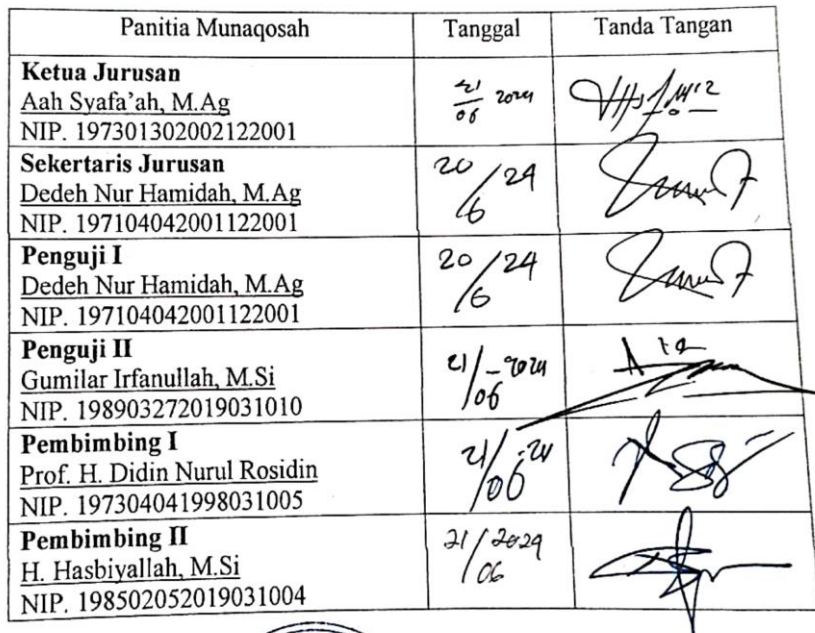 Panitia Munaqosah Tanggal Tanda Tangan
Ketua Jurusan
Aah Syafa'ah, M.Ag
NIP. 197301302002122001
21/06 2024
Sekertaris Jurusan
Dedeh Nur Hamidah, M.Ag
NIP. 197104042001122001
20/6 24
Penguji I
Dedeh Nur Hamidah, M.Ag
NIP. 197104042001122001
20/6 24
Penguji II
Gumilar Irfanullah, M.Si
NIP. 198903272019031010
21/06 - 2024
Pembimbing I
Prof. H. Didin Nurul Rosidin
NIP. 197304041998031005
21/06 - 24
Pembimbing II
H. Hasbiyallah, M.Si
NIP. 198502052019031004
21/06 2024